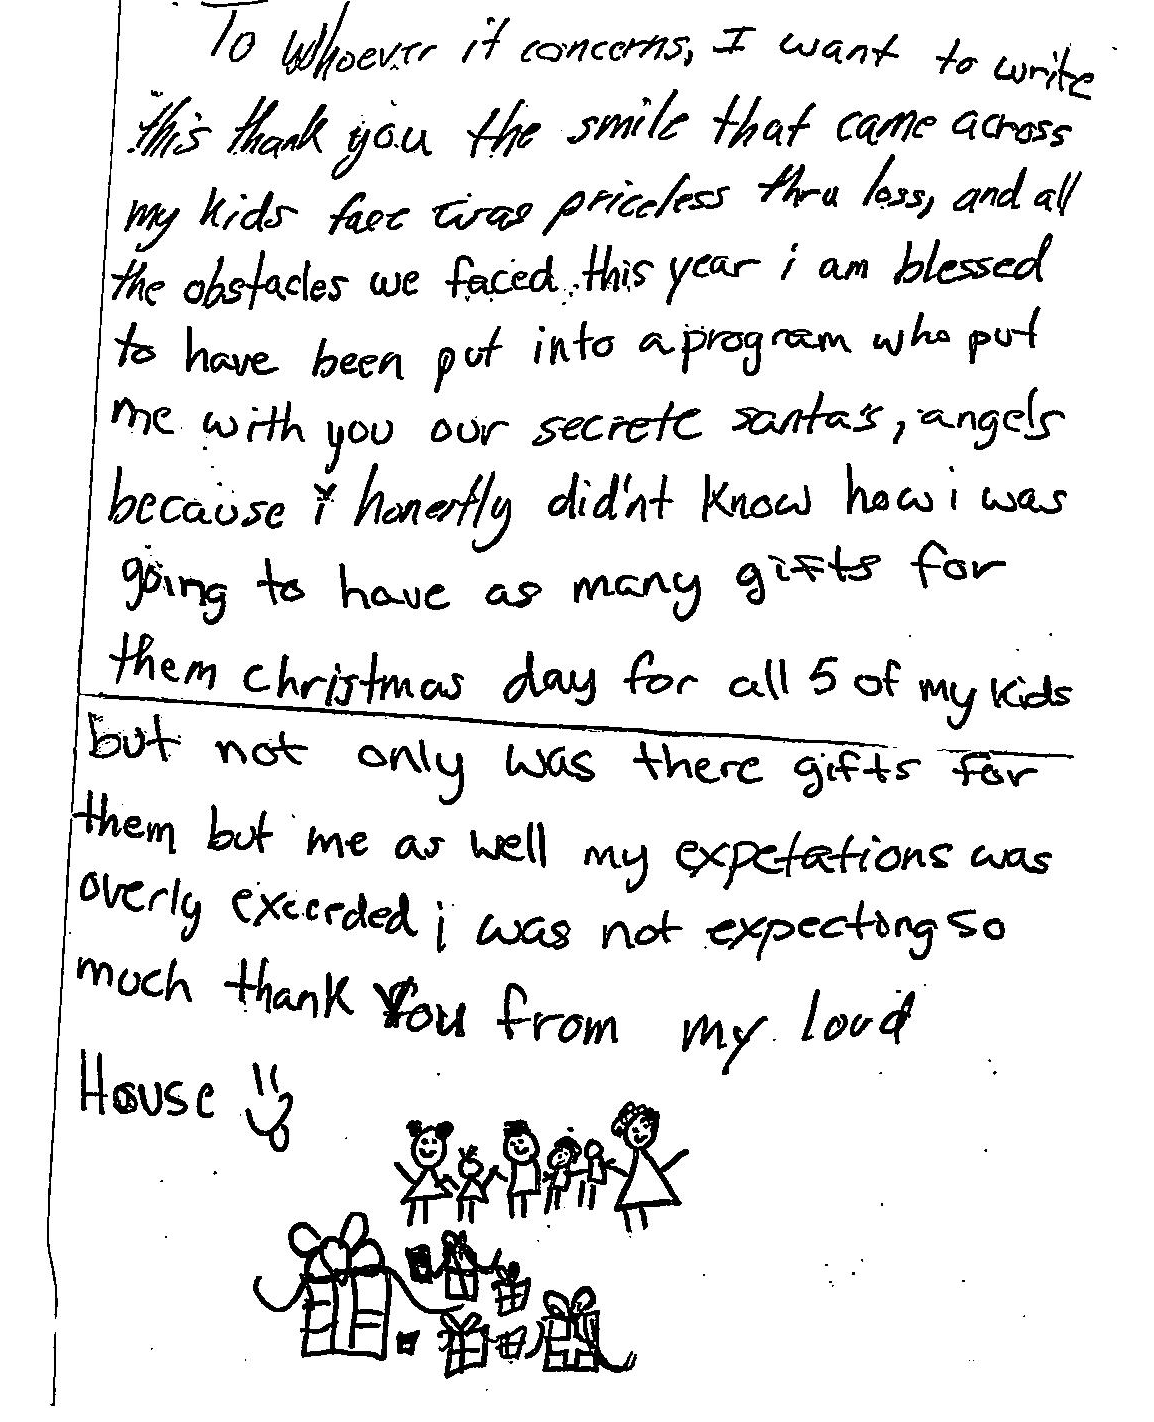 To Whoever it concerns, I want to write
this thank you the smile that came across
my kids face was priceless thru loss, and all
the obstacles we faced this year i am blessed
to have been put into a program who put
me with you our secrete santa's, angels
because i honestly didn't know how i was
going to have as many gifts for
them christmas day for all 5 of my kids
but not only was there gifts for
them but me as well my expetations was
overly exceeded i was not expecting so
much thank You from my loud
House